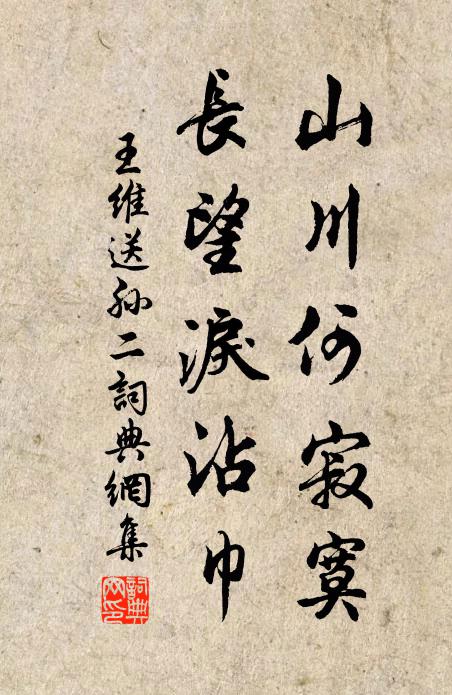 山川何寂寞
長望淚沾巾
王維送孙二詞典網集
詞典网印